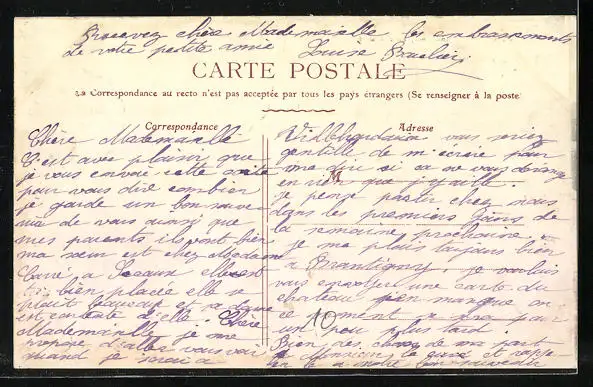 Recevez chère Mademoiselle les embrassements
de votre petite amie Louise
CARTE POSTALE
Correspondance au recto n'est pas acceptée par tous les pays étrangers (Se renseigner à la poste
Correspondance
Chère Mademoiselle
C'est avec plaisir que
je vous envoie cette carte
pour vous dire combien
je garde un bon souve
nir de vous ainsi que
mes parents ils vont bien
ma sœur est chez Madame
Carré a Sceaux elle est
très bien placée elle se
plait beaucoup et a
est contente d'elle. Chère
Mademoiselle je me
propose d'aller vous voir
quand je serai a
Adresse
M
vous seriez
gentille de m'écrire pour
me dire si ça ne vous dérange
en rien que j'y aille.
je pense partir chez nous
dans les premiers jours de
la semaine prochaine.
je me plais toujours bien
a Brantigny, je voulais
vous envoyer une carte du
chateau on en manque en
ce moment
un peu plus tard.
Bien des choses de ma part
a Monsieur le curé et
10